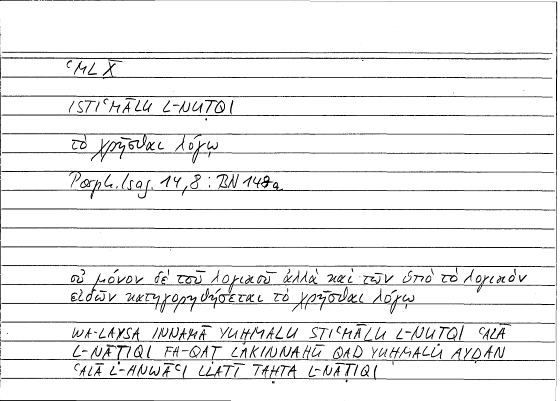 ʿML X̅
ISTIʿMĀLU L-NUṬQI
τὸ χρῆσθαι λόγῳ
Porph. Isag. 14,8 : BN 148a
οὐ μόνον δὲ τοῦ λογικοῦ ἀλλὰ καὶ τῶν ὑπὸ τὸ λογικὸν
εἰδῶν κατηγορηθήσεται τὸ χρῆσθαι λόγῳ
WA-LAYSA INNAMĀ YUḤMALU STIʿMĀLU L-NUṬQI ʿALĀ
L-NĀṬIQI FA-QAṬ LĀKINNAHŪ QAD YUḤMALU AYḌAN
ʿALĀ L-ANWĀʿI LLATĪ TAḤTA L-NĀṬIQI